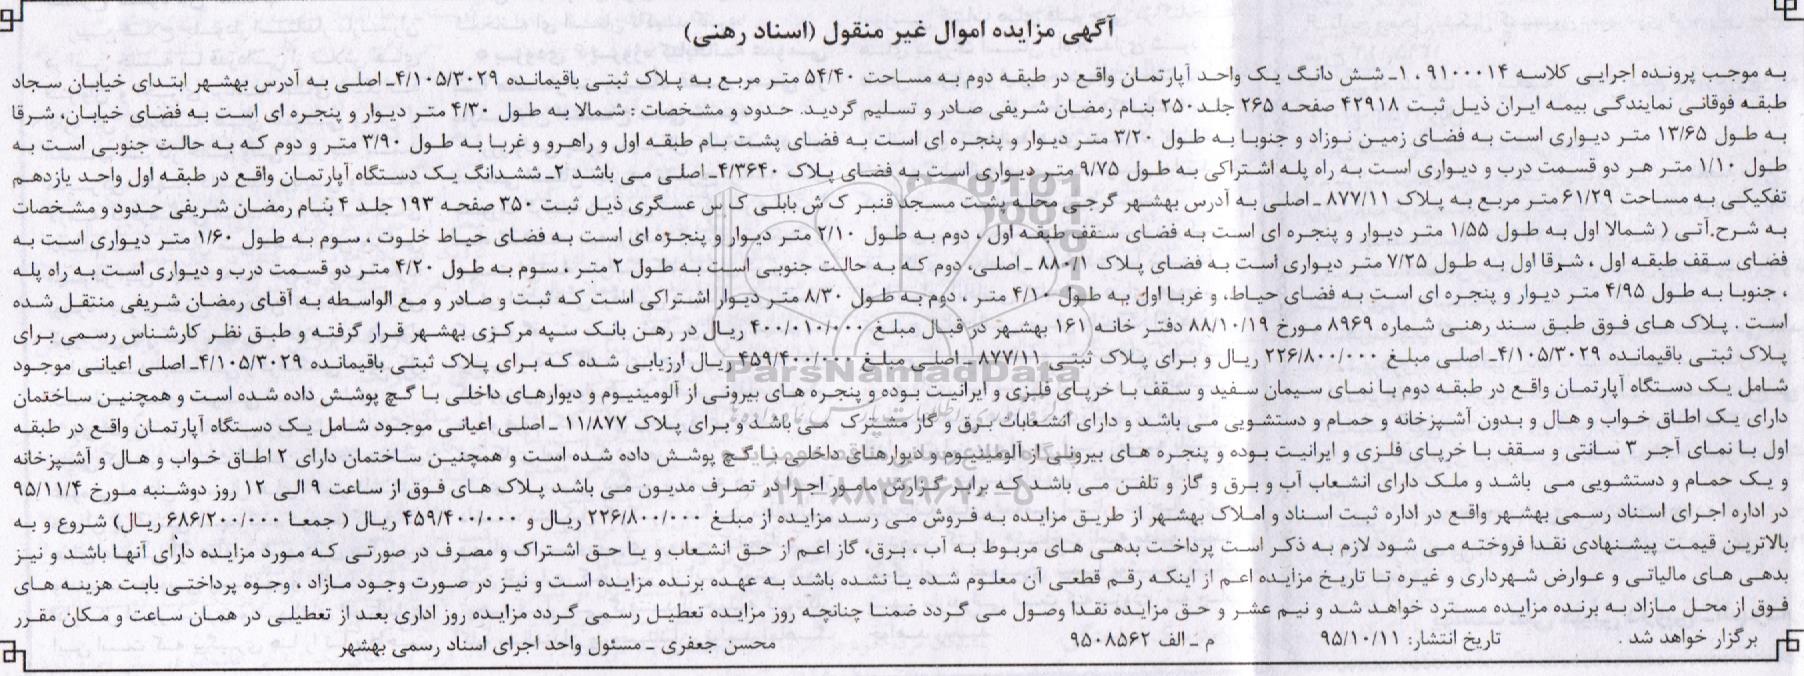 آگهی مزایده اموال غیر منقول (اسناد رهنی)
به موجب پرونده اجرایی کلاسه ۹۱۰۰۰۱۴ ، ۱ـ شش دانگ یک واحد آپارتمان واقع در طبقه دوم به مساحت ۵۴/۴۰ متر مربع به پلاک ثبتی باقیمانده ۴/۱۰۵/۳۰۲۹ـ اصلی به آدرس بهشهر ابتدای خیابان سجاد
طبقه فوقانی نمایندگی بیمه ایران ذیل ثبت ۴۲۹۱۸ صفحه ۲۶۵ جلد ۲۵۰ بنام رمضان شریفی صادر و تسلیم گردید. حدود و مشخصات : شمالا به طول ۴/۳۰ متر دیوار و پنجره ای است به فضای خیابان، شرقا
به طول ۱۳/۶۵ متر دیواری است به فضای زمین نوزاد و جنوبا به طول ۳/۲۰ متر دیوار و پنجره ای است به فضای پشت بام طبقه اول و راهرو و غربا به طول ۳/۹۰ متر و دوم که به حالت جنوبی است به
طول ۱/۱۰ متر هر دو قسمت درب و دیواری است به راه پله اشتراکی به طول ۹/۷۵ متر دیواری است به فضای پلاک ۴/۳۶۴۰ـ اصلی می باشد ۲ـ ششدانگ یک دستگاه آپارتمان واقع در طبقه اول واحد یازدهم
تفکیکی به مساحت ۶۱/۲۹ متر مربع به پلاک ۸۷۷/۱۱ ـ اصلی به آدرس بهشهر گرجی محله پشت مسجد قنبر ک ش بابلی ک س عسگری ذیل ثبت ۳۵۰ صفحه ۱۹۳ جلد ۴ بنام رمضان شریفی حدود و مشخصات
به شرح آتی ( شمالا اول به طول ۱/۵۵ متر دیوار و پنجره ای است به فضای سقف طبقه اول ، دوم به طول ۲/۱۰ متر دیوار و پنجره ای است به فضای حیاط خلوت ، سوم به طول ۱/۶۰ متر دیواری است به
فضای سقف طبقه اول ، شرقا اول به طول ۷/۲۵ متر دیواری است به فضای پلاک ۸۸۰/۱ ـ اصلی، دوم که به حالت جنوبی است به طول ۲ متر ، سوم به طول ۴/۲۰ متر دو قسمت درب و دیواری است به راه پله
، جنوبا به طول ۴/۹۵ متر دیوار و پنجره ای است به فضای حیاط، و غربا اول به طول ۴/۱۰ متر ، دوم به طول ۸/۳۰ متر دیوار اشتراکی است که ثبت و صادر و مع الواسطه به آقای رمضان شریفی منتقل شده
است . پلاک های فوق طبق سند رهنی شماره ۸۹۶۹ مورخ ۸۸/۱۰/۱۹ دفتر خانه ۱۶۱ بهشهر در قبال مبلغ ۴۰۰/۰۱۰/۰۰۰ ریال در رهن بانک سپه مرکزی بهشهر قرار گرفته و طبق نظر کارشناس رسمی برای
پلاک ثبتی باقیمانده ۴/۱۰۵/۳۰۲۹ـ اصلی مبلغ ۲۲۶/۸۰۰/۰۰۰ ریال و برای پلاک ثبتی ۸۷۷/۱۱ـ اصلی مبلغ ۴۵۹/۴۰۰/۰۰۰ ریال ارزیابی شده که برای پلاک ثبتی باقیمانده ۴/۱۰۵/۳۰۲۹ـ اصلی اعیانی موجود
شامل یک دستگاه آپارتمان واقع در طبقه دوم با نمای سیمان سفید و سقف با خرپای فلزی و ایرانیت بوده و پنجره های بیرونی از آلومینیوم و دیوارهای داخلی با گچ پوشش داده شده است و همچنین ساختمان
دارای یک اطاق خواب و هال و بدون آشپزخانه و حمام و دستشویی می باشد و دارای انشعابات برق و گاز مشترک می باشد و برای پلاک ۱۱/۸۷۷ ـ اصلی اعیانی موجود شامل یک دستگاه آپارتمان واقع در طبقه
اول با نمای آجر ۳ سانتی و سقف با خرپای فلزی و ایرانیت بوده و پنجره های بیرونی از آلومینیوم و دیوارهای داخلی با گچ پوشش داده شده است و همچنین ساختمان دارای ۲ اطاق خواب و هال و آشپزخانه
و یک حمام و دستشویی می باشد و ملک دارای انشعاب آب و برق و گاز و تلفن می باشد که برابر گزارش مامور اجرا در تصرف مدیون می باشد پلاک های فوق از ساعت ۹ الی ۱۲ روز دوشنبه مورخ ۹۵/۱۱/۴
در اداره اجرای اسناد رسمی بهشهر واقع در اداره ثبت اسناد و املاک بهشهر از طریق مزایده به فروش می رسد مزایده از مبلغ ۲۲۶/۸۰۰/۰۰۰ ریال و ۴۵۹/۴۰۰/۰۰۰ ریال ( جمعا ۶۸۶/۲۰۰/۰۰۰ ریال) شروع و به
بالاترین قیمت پیشنهادی نقدا فروخته می شود لازم به ذکر است پرداخت بدهی های مربوط به آب ، برق، گاز اعم از حق انشعاب و یا حق اشتراک و مصرف در صورتی که مورد مزایده دارای آنها باشد و نیز
بدهی های مالیاتی و عوارض شهرداری و غیره تا تاریخ مزایده اعم از اینکه رقم قطعی آن معلوم شده یا نشده باشد به عهده برنده مزایده است و نیز در صورت وجود مازاد ، وجوه پرداختی بابت هزینه های
فوق از محل مازاد به برنده مزایده مسترد خواهد شد و نیم عشر و حق مزایده نقدا وصول می گردد ضمنا چنانچه روز مزایده تعطیل رسمی گردد مزایده روز اداری بعد از تعطیلی در همان ساعت و مکان مقرر
برگزار خواهد شد . تاریخ انتشار: ۹۵/۱۰/۱۱ م ـ الف ۹۵۰۸۵۶۲
محسن جعفری ـ مسئول واحد اجرای اسناد رسمی بهشهر
ParsNamadData